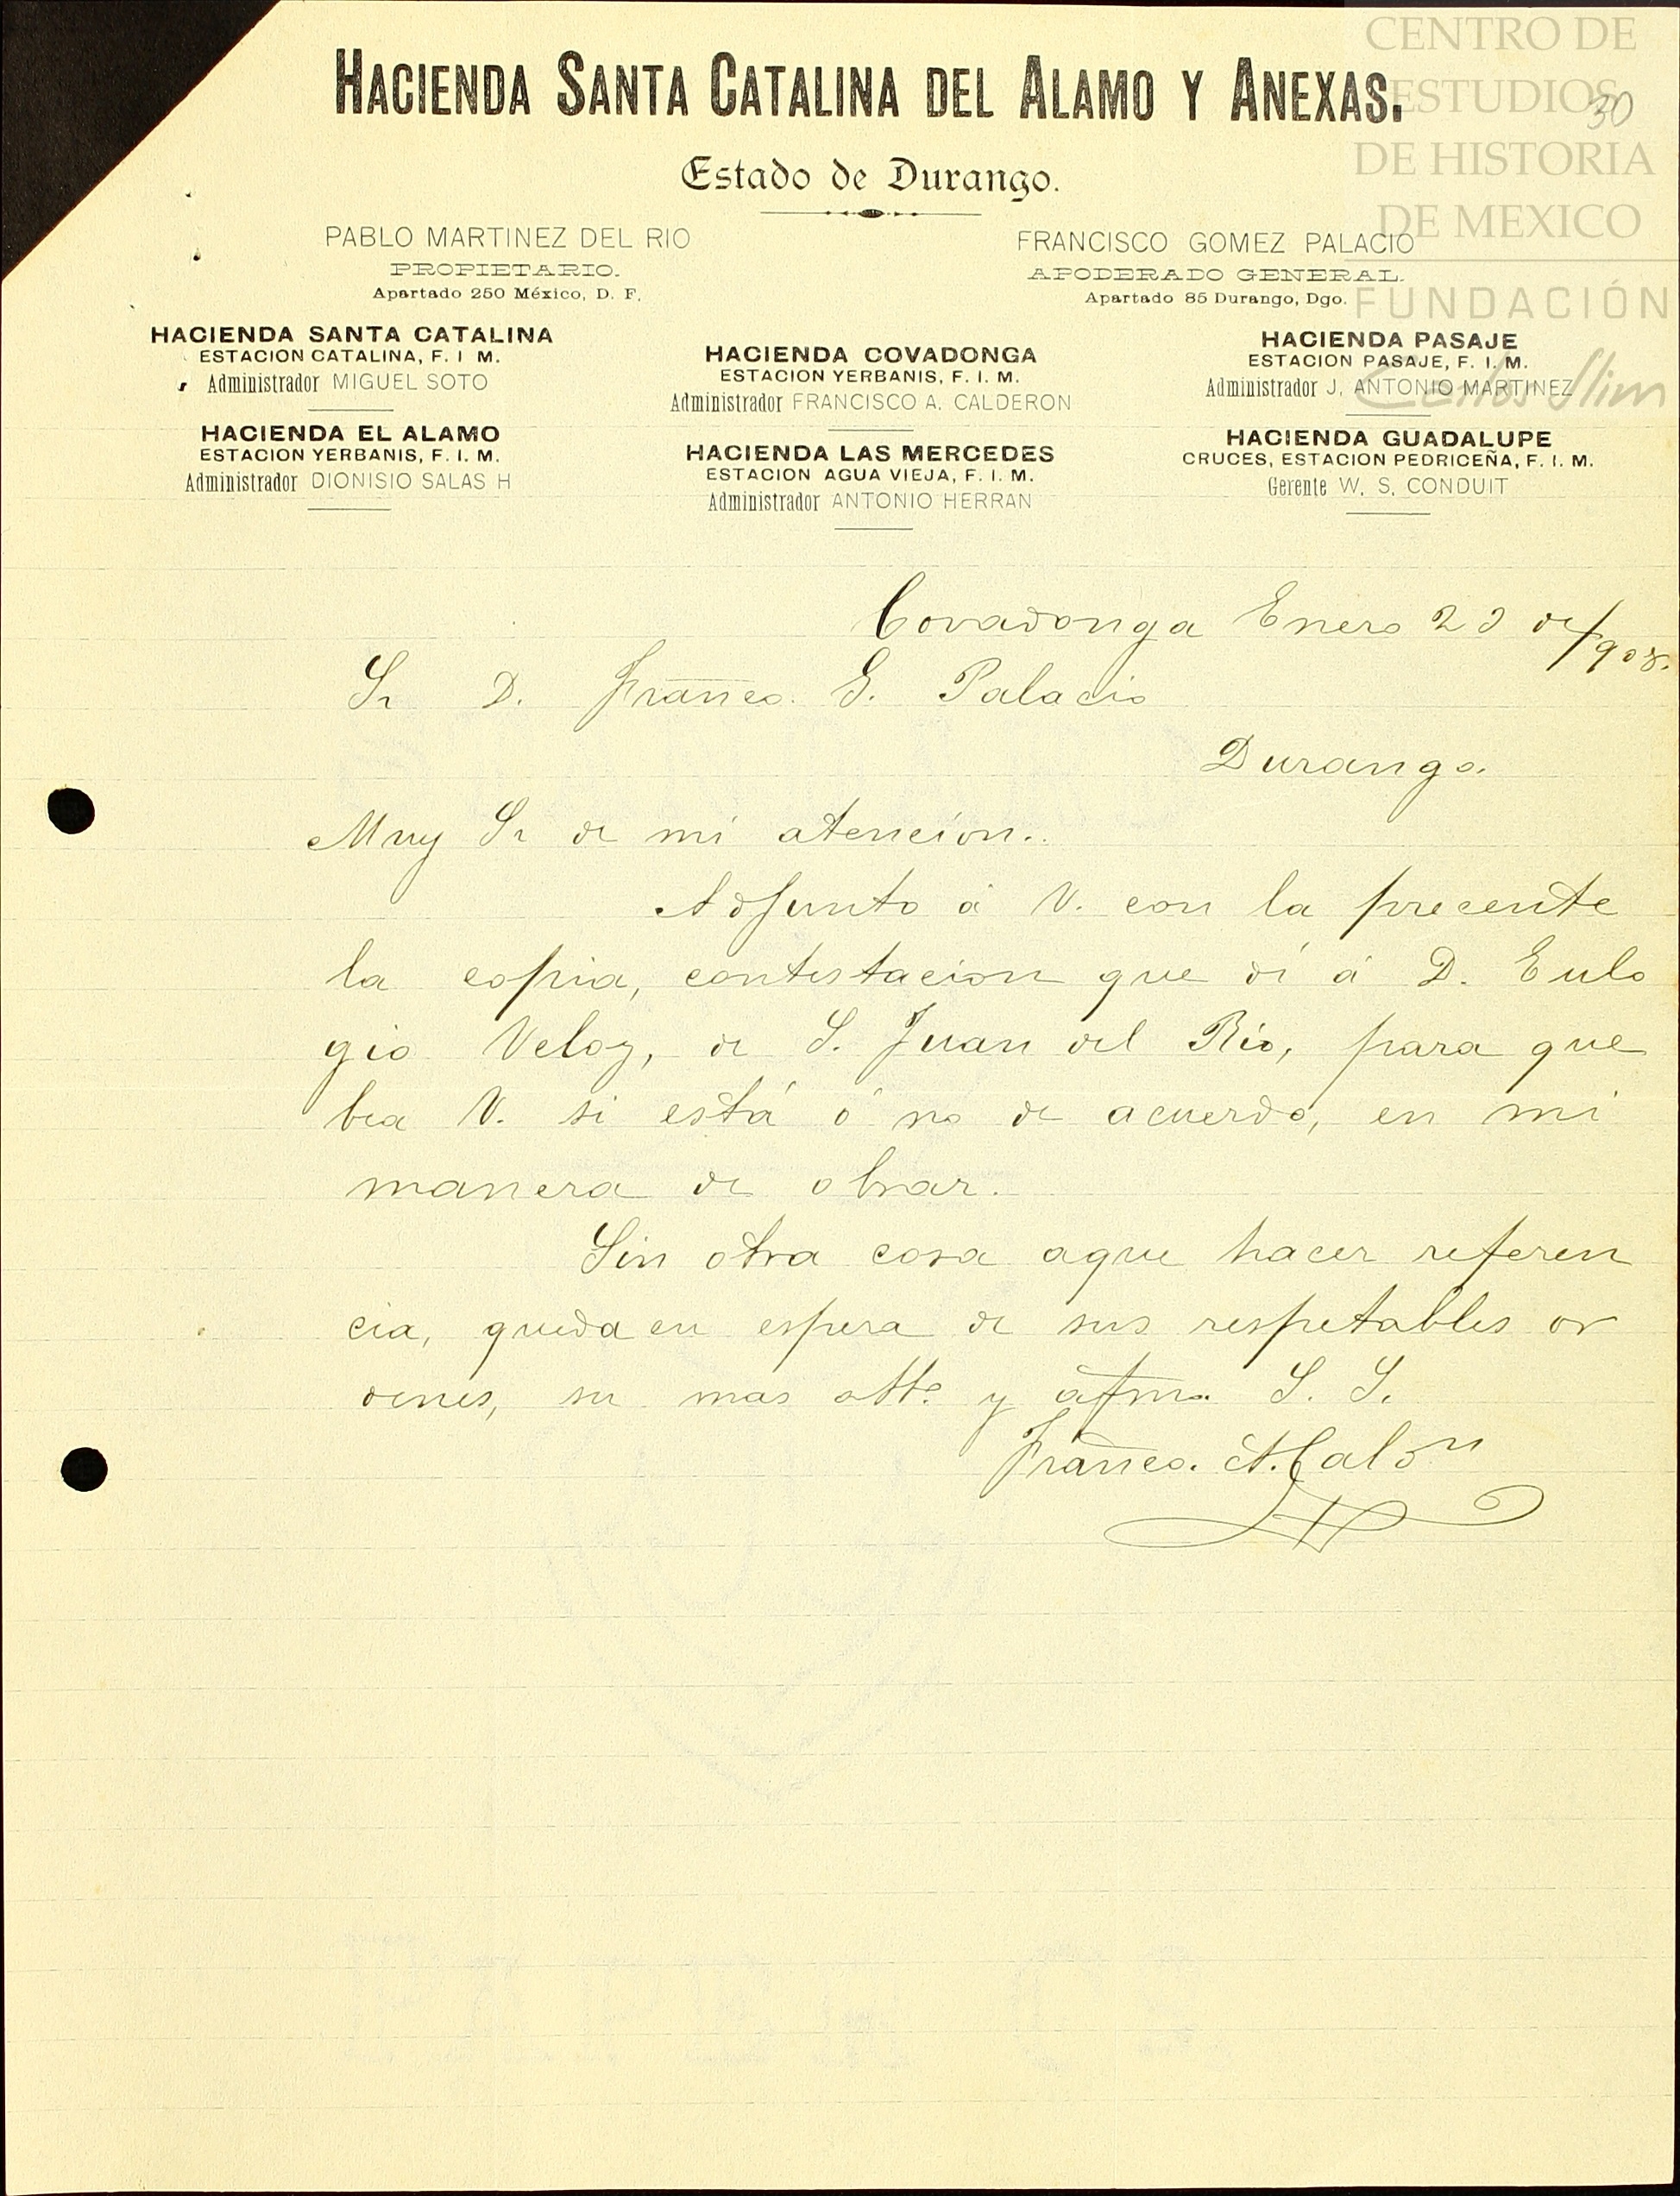 CENTRO DE
ESTUDIOS
DE HISTORIA
DE MEXICO
FUNDACIÓN
Carlos Slim
30
HACIENDA SANTA CATALINA DEL ALAMO Y ANEXAS.
Estado de Durango.
PABLO MARTINEZ DEL RIO
PROPIETARIO.
Apartado 250 México, D. F.
FRANCISCO GOMEZ PALACIO
APODERADO GENERAL.
Apartado 85 Durango, Dgo.
HACIENDA SANTA CATALINA
ESTACION CATALINA, F. I M.
Administrador MIGUEL SOTO
HACIENDA EL ALAMO
ESTACION YERBANIS, F. I. M.
Administrador DIONISIO SALAS H
HACIENDA COVADONGA
ESTACION YERBANIS, F. I. M.
Administrador FRANCISCO A. CALDERON
HACIENDA LAS MERCEDES
ESTACION AGUA VIEJA, F. I. M.
Administrador ANTONIO HERRAN
HACIENDA PASAJE
ESTACION PASAJE, F. I. M.
Administrador J. ANTONIO MARTINEZ
HACIENDA GUADALUPE
CRUCES, ESTACION PEDRICEÑA, F. I. M.
Gerente W. S. CONDUIT
Covadonga Enero 23 de/908.
Sr D. Franco. G. Palacio
Durango.
Muy Sr de mi atencion..
Adjunto á V. con la precente
la copia, contestacion que di á D. Eulo
gio Veloz, de S. Juan del Rio, para que
bea V. si está ó no de acuerdo, en mi
manera de obrar.
Sin otra cosa aque hacer referen
cia, queda en espera de sus respetables or
denes, su mas atto. y afmo. S. S.
Franco. A. Calon